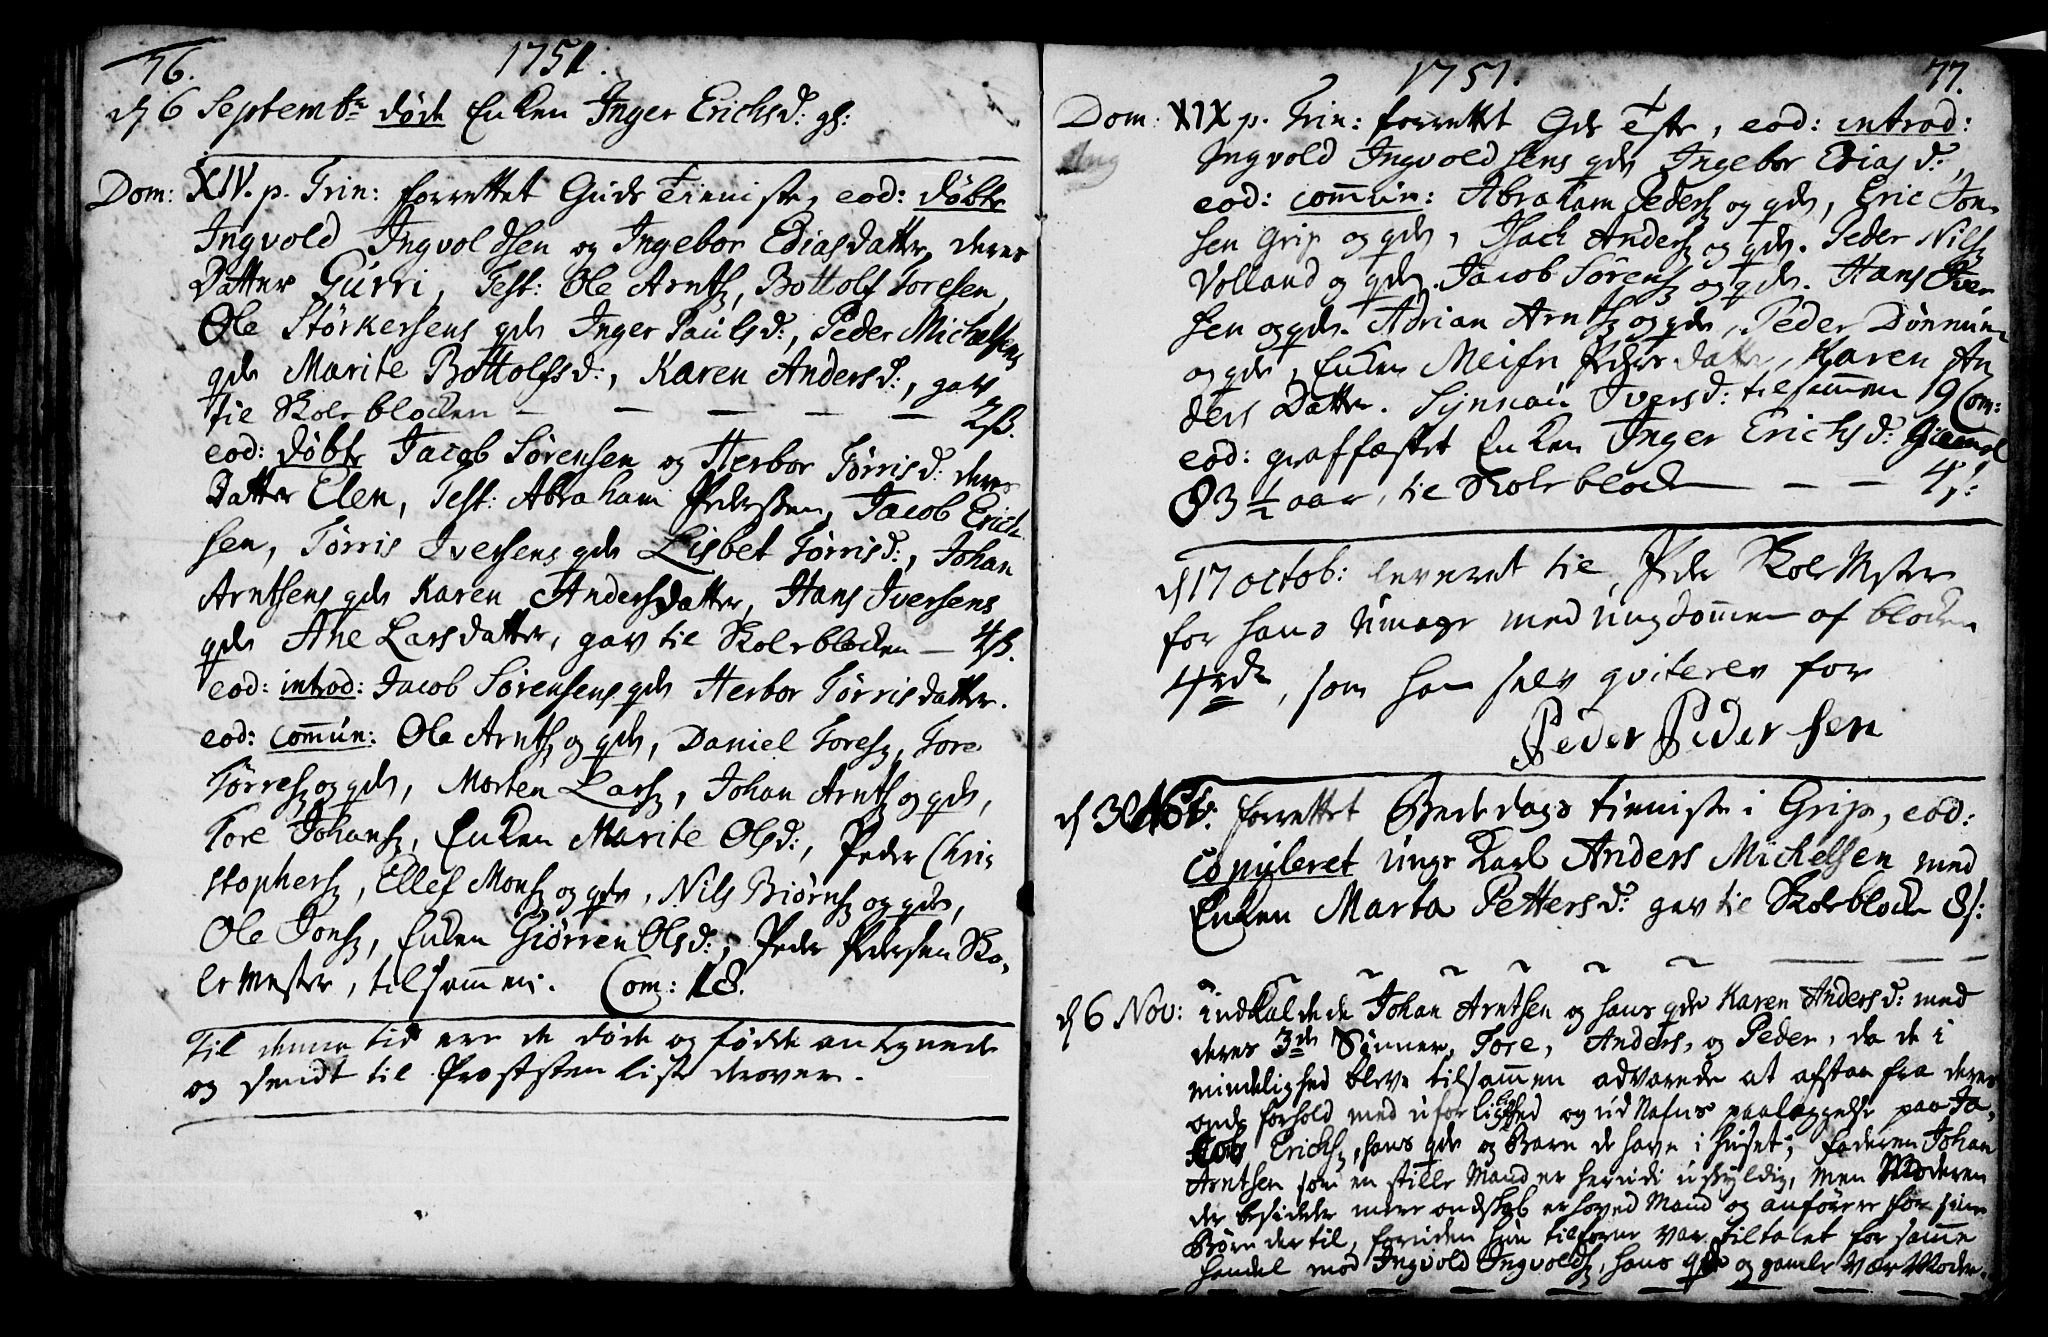 76.
1751.
d 6 Septembr døde Enken Inger Erichsd: gl:
Dom: XIV. p. Trin: forrettet Guds Tieniste, eod: døbte
Ingvold Ingvoldsen og Ingebor Ediasdatter, deres
Datter Gurri, Test: Ole Arnts, Bottolf Toresen,
Ole Størkersens qde Inger Paulsd:, Peder Michelsens
qde Marite Bottolfsd:, Karen Andersd:, gav
til Skoleblocken — — — — — 2ß.
eod: døbte Jacob Sørensen og Herbor Tørrisd: deres
Datter Elen, Test: Abraham Pedersen, Jacob Erich-
sen, Tørris Iversens qde Lisbet Tørrisd:, Johan
Arntsens qde Karen Andersdatter, Hans Iversens
qde Ane Larsdatter, gav til Skoleblocken — 4ß.
eod: introd: Jacob Sørensens qde Herbor Tørrisdatter.
eod: com̄un: Ole Arnts og qde, Daniel Tores, Tore
Tørres og qde, Morten Lars, Johan Arnts og qde,
Tore Johans, Enken Marite Olsd:, Peder Chri-
stophers, Ellef Mons og qde, Nils Biørns og qde,
Ole Jons, Enken Giørren Olsd:, Peder Pedersen Sko-
lemester, tilsam̄en. Com: 18.
Til denne tid ere de døde og fødde antegnede
og sendt til Provsten list derover.
1751.
77.
Dom: XIX p. Trin: forrettet Gds Tste, eod: introd:
Ingvold Ingvoldsens qde Ingebor Ediasd:,
eod: com̄un: Abraham Peders og qde, Eric Jon-
sen Grip og qde, Isach Anders og qde. Peder Nils
Volland og qde. Jacob Sørens og qde. Hans Iver
sen og qde. Adrian Arnts og qde, Peder Dønnun-
og qde, Enken Pedersdatter, Karen An
ders Datter. Synnaü Iversd: tilsam̄en 19 Com:
eod: graffæstet Enken Inger Erichsd: Gammel
83 1/2 aar, til Skoleblocken — — 4ß:
d 17 octob: leveret til Peder SkoleMester
for hans Umage med Ungdom̄en af blocken
4rd, som han selv qviterer for
Peder Pedersen
d 30 forrettet Bededags tieniste i Grip, eod:
Copuleret Unge Karl Anders Michelsen med
Enken Marta Pettersd: gav til Skoleblocken 8ß:
d 6 Nov: indkaldede Johan Arntsen og hans qde Karen Andersd: med
deres 3de Sønner, Tore, Anders, og Peder, da de i
mindelighed bleve tilsam̄en advarede at afstaa fra deres
onde forhold med uforligelighed og ud Nafns paalæggelse paa Ja-
cob Erichs, hans qde og Barn de have i huset; faderen Johan
Arntsen som en stille Mand er herudi uskyldig, men Moderen
der besidder mere ondskab er hoved Mand og anfører for sine
Børn dertil, foruden hun tilforne var tiltalet for sam̄e
handel mod Ingvold Ingvolds, hans qde og gamle Vær Moder.